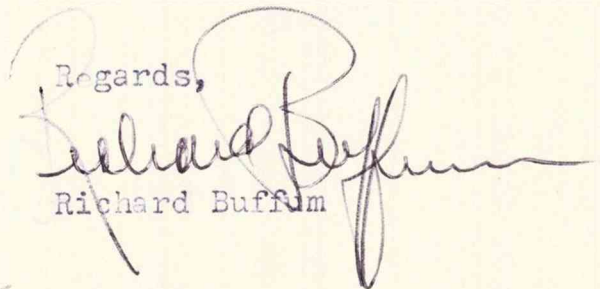 Regards,
Richard Buffum
Richard Buffum